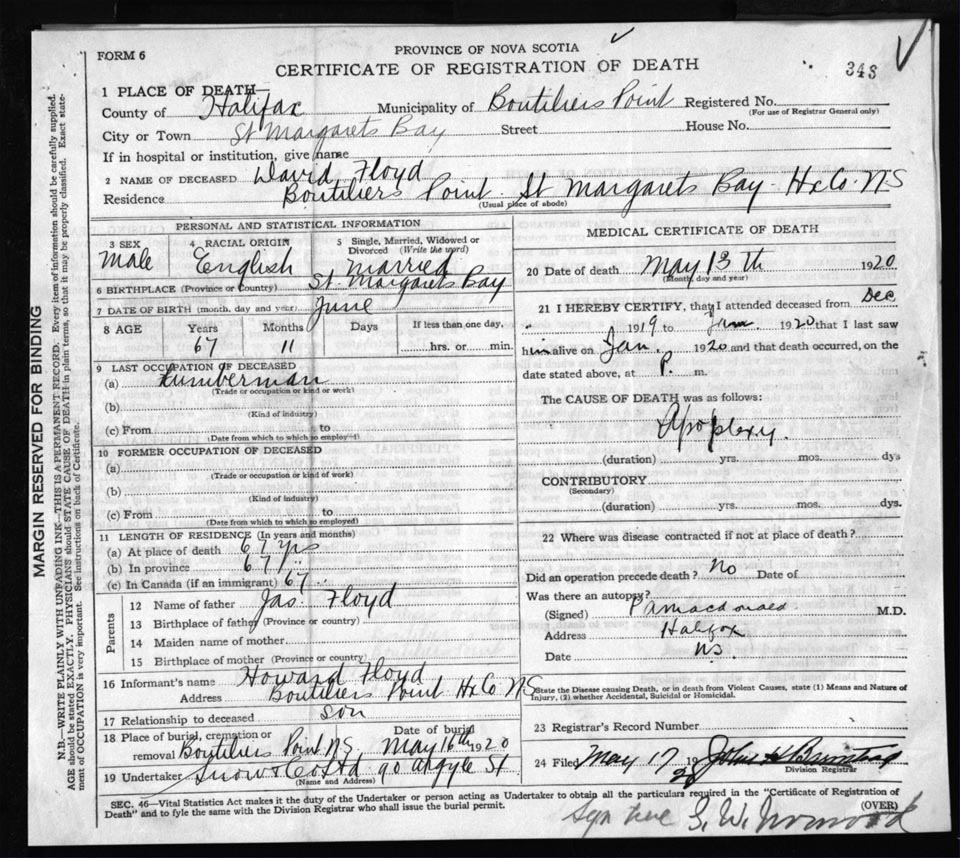 FORM 6
PROVINCE OF NOVA SCOTIA
CERTIFICATE OF REGISTRATION OF DEATH
343
1 PLACE OF DEATH—
County of Halifax Municipality of Boutiliers Point Registered No.
(For use of Registrar General only)
City or Town St Margarets Bay Street House No.
If in hospital or institution, give name
2 NAME OF DECEASED David Floyd
Residence Boutiliers Point St Margarets Bay Hx Co. N S
(Usual place of abode)
PERSONAL AND STATISTICAL INFORMATION
3 SEX Male
4 RACIAL ORIGIN English
5 Single, Married, Widowed or Divorced (Write the word) married
6 BIRTHPLACE (Province or Country) St. Margarets Bay
7 DATE OF BIRTH (month, day and year) June
8 AGE Years Months Days If less than one day,
67 11 hrs. or min.
9 LAST OCCUPATION OF DECEASED
(a) Lumberman
(Trade or occupation or kind of work)
(b)
(Kind of industry)
(c) From to
(Date from which to which so employed)
10 FORMER OCCUPATION OF DECEASED
(a)
(Trade or occupation or kind of work)
(b)
(Kind of industry)
(c) From to
(Date from which to which so employed)
11 LENGTH OF RESIDENCE (In years and months)
(a) At place of death 67 yrs
(b) In province 67 "
(c) In Canada (if an immigrant) 67 "
Parents
12 Name of father Jas. Floyd
13 Birthplace of father (Province or country)
14 Maiden name of mother
15 Birthplace of mother (Province or country)
16 Informant's name Howard Floyd
Address Boutiliers Point Hx Co N S
17 Relationship to deceased son
18 Place of burial, cremation or removal Boutiliers Point N S. Date of burial May 16th 1920
19 Undertaker Snow & Co Ltd 90 Argyle St
(Name and Address)
MEDICAL CERTIFICATE OF DEATH
20 Date of death May 13th 1920
(Month, day and year)
21 I HEREBY CERTIFY, that I attended deceased from Dec
1919 to Jan. 1920 that I last saw
him alive on Jan. 1920 and that death occurred, on the
date stated above, at P. m.
The CAUSE OF DEATH was as follows:
Apoplexy.
(duration) yrs. mos. dys
CONTRIBUTORY
(Secondary)
(duration) yrs. mos. dys.
22 Where was disease contracted if not at place of death?
Did an operation precede death? No Date of
Was there an autopsy?
(Signed) M.D.
Address Halifax
Date N.S.
State the Disease causing Death, or in death from Violent Causes, state (1) Means and Nature of
Injury, (2) whether Accidental, Suicidal or Homicidal.
23 Registrar's Record Number
24 Filed May 17 19 20 John
Division Registrar
SEC. 46—Vital Statistics Act makes it the duty of the Undertaker or person acting as Undertaker to obtain all the particulars required in the "Certificate of Registration of
Death" and to fyle the same with the Division Registrar who shall issue the burial permit.
(OVER)
MARGIN RESERVED FOR BINDING
N.B.—WRITE PLAINLY WITH UNFADING INK—THIS IS A PERMANENT RECORD. Every item of information should be carefully supplied.
AGE should be stated EXACTLY. PHYSICIANS should STATE CAUSE OF DEATH in plain terms, so that it may be properly classified. Exact statement
of OCCUPATION is very important. See instructions on back of Certificate.